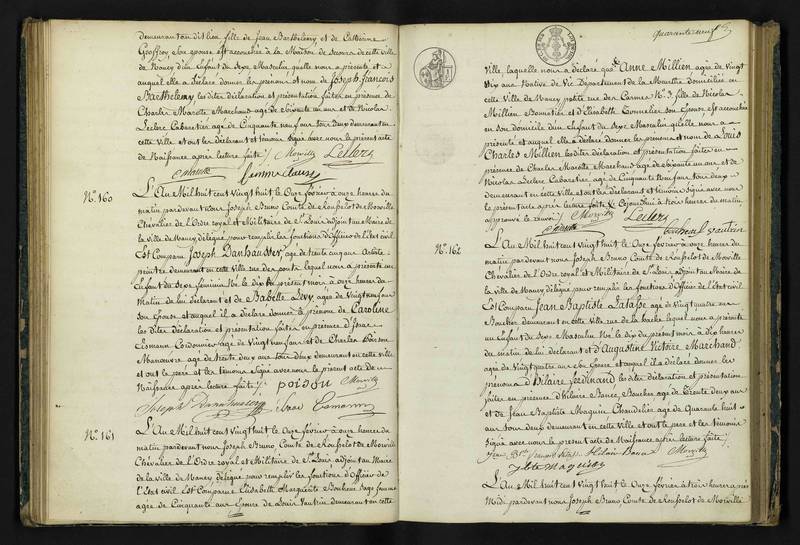 demeurant au dit lieu fille de Jean Barthélemy et de Catherine
Geoffroy son épouse est accouchée à la Maison de Secours de cette ville
de Nancy d'un Enfant du Sexe Masculin, qu'elle nous a présenté et
auquel elle a déclaré donner les prénoms et nom de Joseph François
Barthélemy, les dites déclaration et présentation faites en présence de
Charles Marotte Marchand agé de soixante un ans et de Nicolas
Leclerc Cabaretier agé de Cinquante neuf ans tous deux demeurant en
cette ville et ont les déclarant et témoins signé avec nous le présent acte
de Naissance après lecture faite /. Morville Leclerc
C Marotte
No. 160
L'An Mil huit cent vingt huit le Onze février à onze heures du
matin pardevant nous Joseph Bruno Comte de Rousselot de Morville
Chevalier de l'Ordre royal et Militaire de St. Louis adjoint au Maire de
la ville de Nancy délégué pour remplir les fonctions d'Officier de l'état civil
Est Comparu Joseph Danhausser, agé de trente cinq ans Artiste
peintre demeurant en cette ville rue des ponts lequel nous a présenté un
Enfant du Sexe féminin Né le dix du présent mois à onze heures du
matin de lui déclarant et de Babette Levy agée de Vingt neuf ans
son Epouse et auquel il a déclaré donner le prénom de Caroline
les dites déclaration et présentation faites en présence d'Isaac
Cismann Cordonnier agé de Vingt neuf ans et de Charles Poisson
Manœuvre agé de trente deux ans tous deux demeurant en cette ville
et ont le père et les témoins signé avec nous le présent acte de
Naissance après lecture faite /. poison Morville
Joseph Danhausser Isac
No. 161
L'An Mil huit cent vingt huit le Onze février à onze heures du
matin pardevant nous Joseph Bruno, Comte de Rousselot de Morville
Chevalier de l'Ordre royal et Militaire de St. Louis adjoint au Maire
de la ville de Nancy, délégué pour remplir les fonctions d'Officier de
l'état civil Est Comparue Elisabeth Marguerite Bonheur Sage femme
agée de Cinquante ans Epouse de Louis Vautrin demeurant en cette
quarante neuf
ville, laquelle nous a déclaré que Anne Millien agée de Vingt
Six ans Native de Vic Département de la Meurthe domiciliée en
cette ville de Nancy petite rue des Carmes No. 3 fille de Nicolas
Millien Bonnetier et d'Elisabeth Tonnelier son Epouse est accouchée
en son domicile d'un Enfant du Sexe Masculin qu'elle nous a
présenté et auquel elle a déclaré donner les prénoms et nom de Louis
Charles Millien les dites déclaration et présentation faites en
présence de Charles Marotte Marchand agé de soixante un ans et de
Nicolas Leclerc Cabaretier agé de Cinquante Neuf ans tous deux
demeurant en cette ville et ont les déclarant et témoins signé avec nous
le présent acte après lecture faite
approuvé Morville Leclerc
C Marotte Vautrin
No. 162
L'An Mil huit cent vingt huit le Onze février à onze heures du
matin pardevant nous Joseph Bruno, Comte de Rousselot de Morville
Chevalier de l'Ordre royal et Militaire de St. Louis adjoint au Maire
de la ville de Nancy, délégué pour remplir les fonctions d'Officier de l'état civil
Est Comparu Jean Baptiste Latasse agé de Vingt quatre ans
Boucher demeurant en cette Ville rue de la hache lequel nous a présenté
un Enfant du Sexe Masculin Né le dix du présent mois à Dix heures
du matin de lui déclarant et d'Augustine Victoire Marchand
agée de Vingt quatre ans son Epouse et auquel il a déclaré donner les
prénoms d'Hilaire Ferdinand les dites déclaration et présentation
faites en présence d'Hilaire Bance, Boucher agé de Trente deux ans
et de Jean Baptiste Maguin Chandelier agé de Quarante huit
ans tous deux demeurant en cette Ville et ont le père et les témoins
signé avec nous le présent acte de Naissance après lecture faite /.
Hilair Morville
JBte Maguin
L'An Mil huit cent Vingt huit le Onze février à trois heures après
Midi pardevant nous Joseph Bruno, Comte de Rousselot de Morville